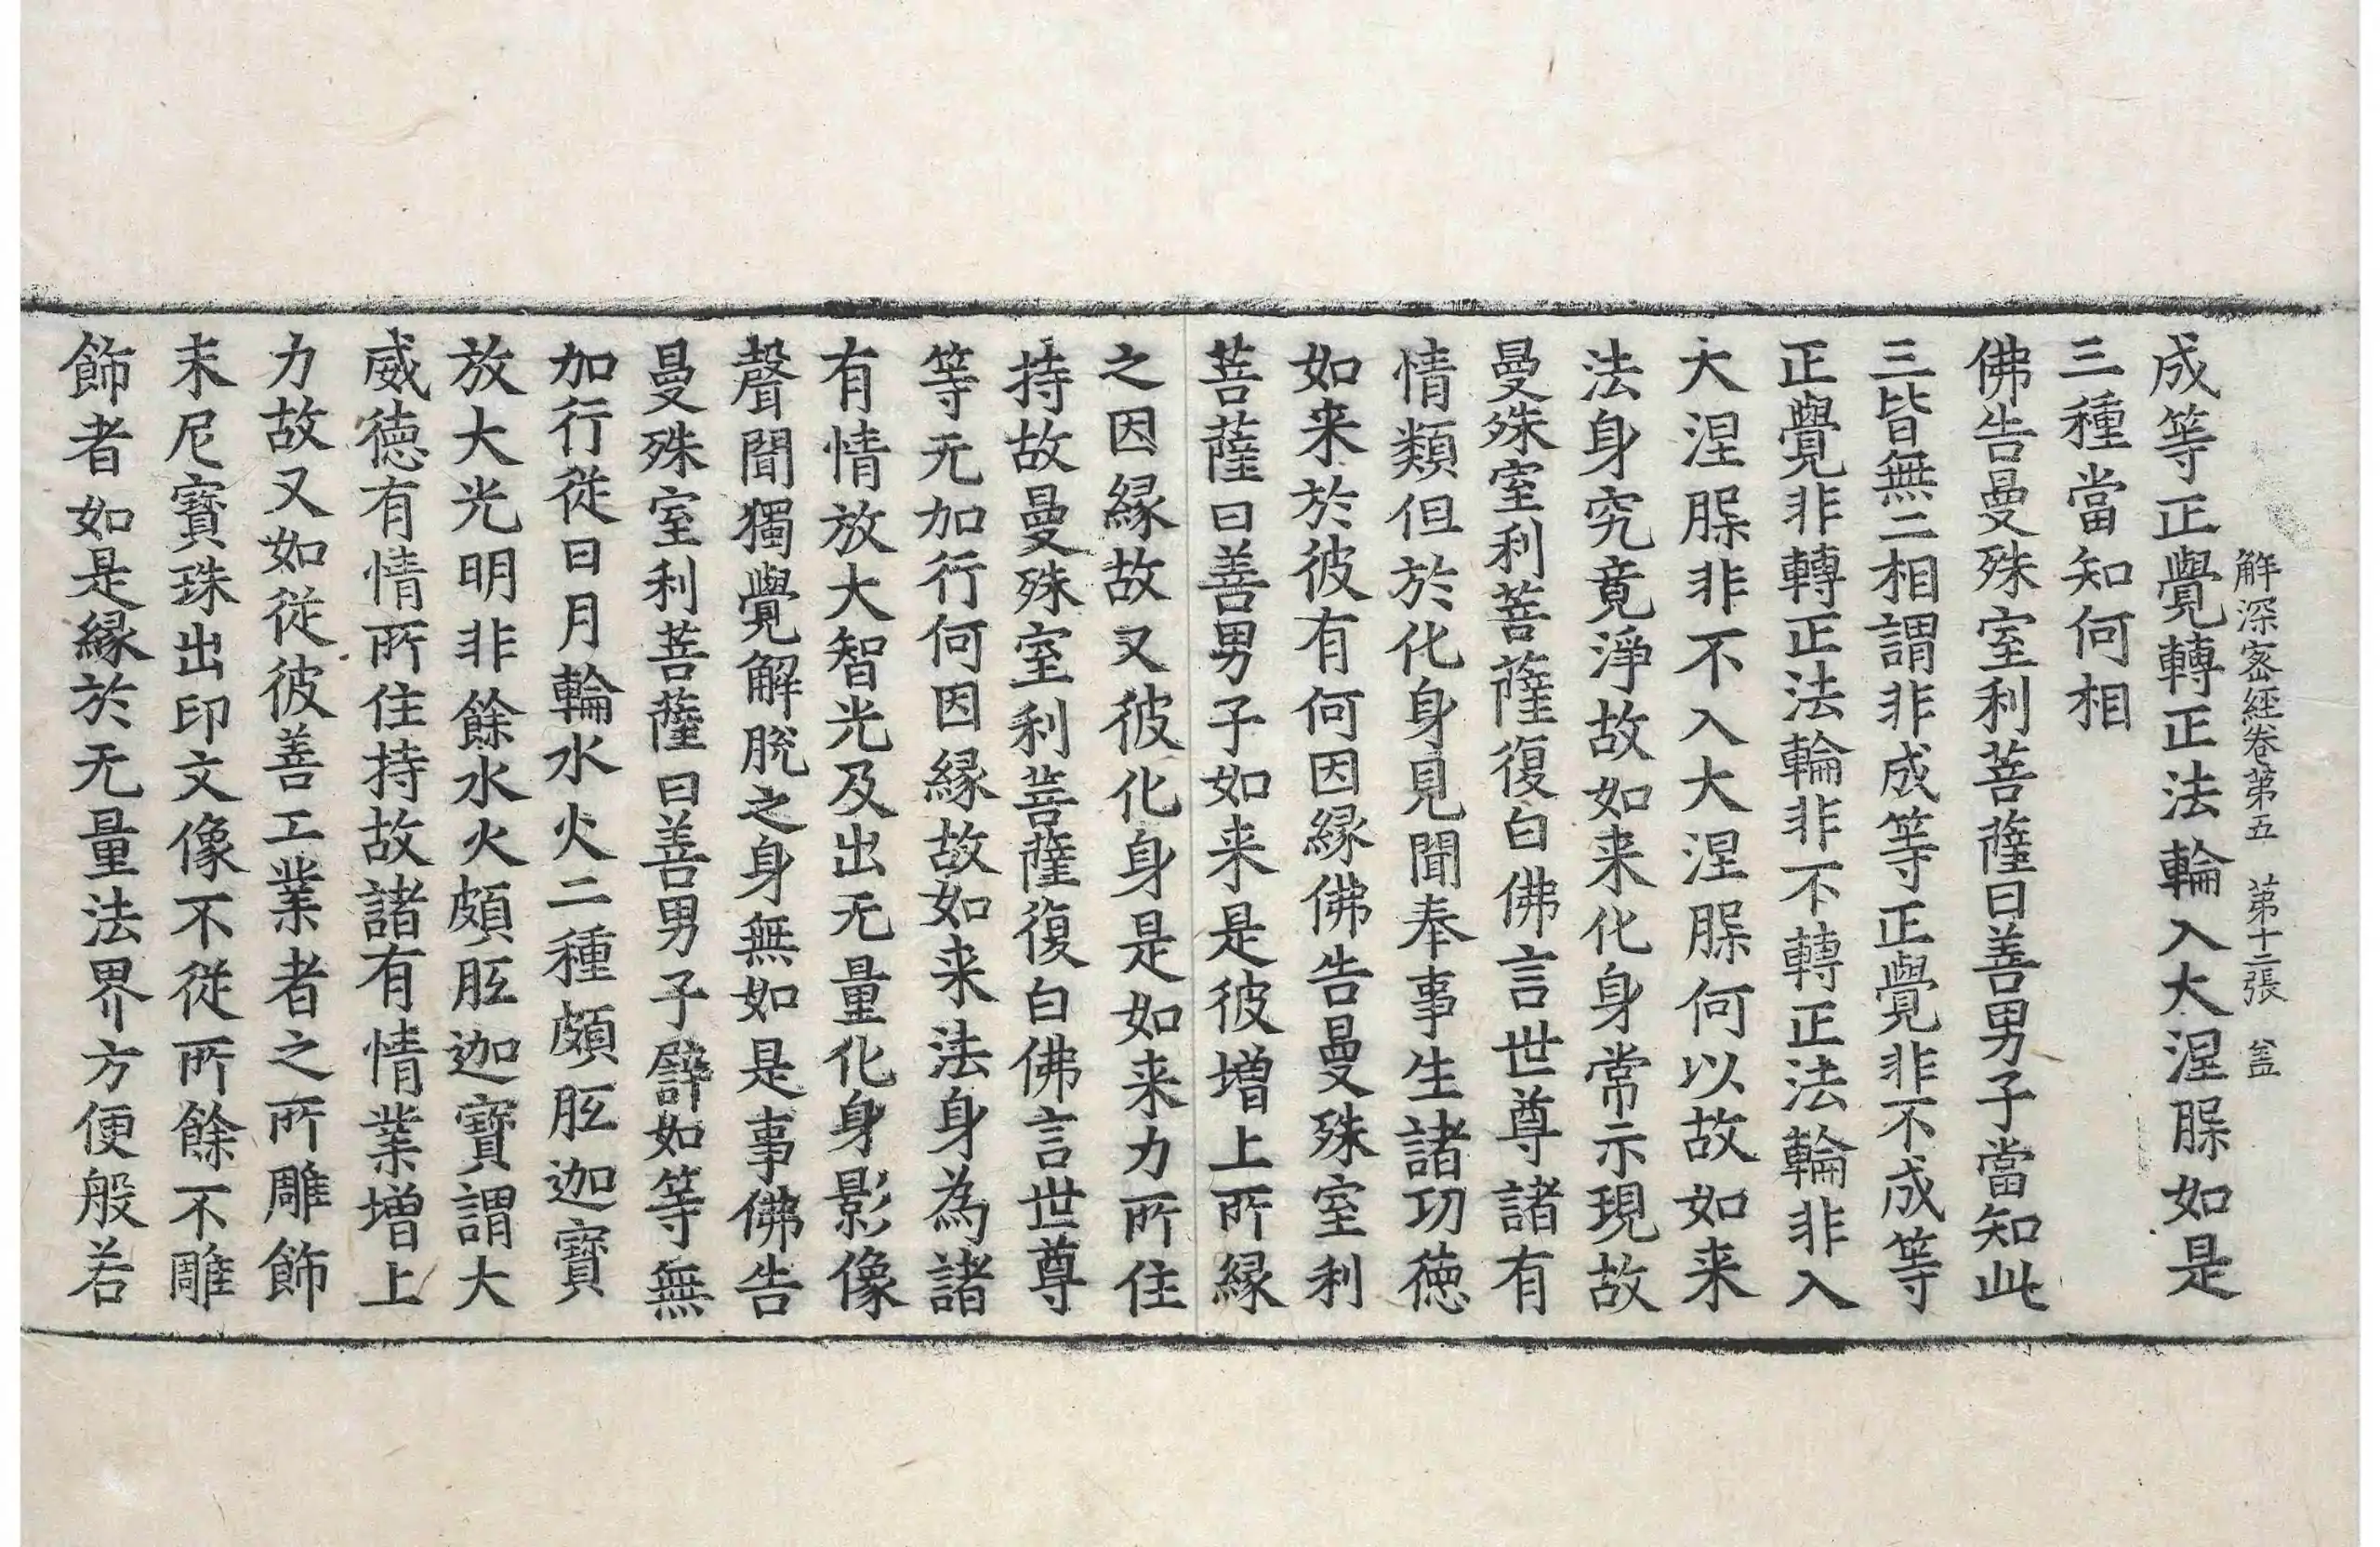 解深密經卷第五　第十二張　盖
成等正覺轉正法輪入大涅脲如是
三種當知何相
佛告曼殊室利菩薩曰善男子當知此
三皆無二相謂非成等正覺非不成等
正覺非轉正法輪非不轉正法輪非入
大涅脲非不入大涅脲何以故如来
法身究竟淨故如来化身常示現故
曼殊室利菩薩復白佛言世尊諸有
情類但於化身見聞奉事生諸功徳
如来於彼有何因縁佛告曼殊室利
菩薩曰善男子如来是彼増上所縁
之因縁故又彼化身是如来力所住
持故曼殊室利菩薩復白佛言世尊
等无加行何因縁故如来法身為諸
有情放大智光及出无量化身影像
聲聞獨覺解脫之身無如是事佛告
曼殊室利菩薩曰善男子譬如等無
加行從日月輪水火二種頗胝迦寶
放大光明非餘水火頗胝迦寶謂大
威徳有情所住持故諸有情業増上
力故又如從彼善工業者之所雕飾
末尼寶珠出印文像不從所餘不雕
飾者如是縁於无量法界方便般若